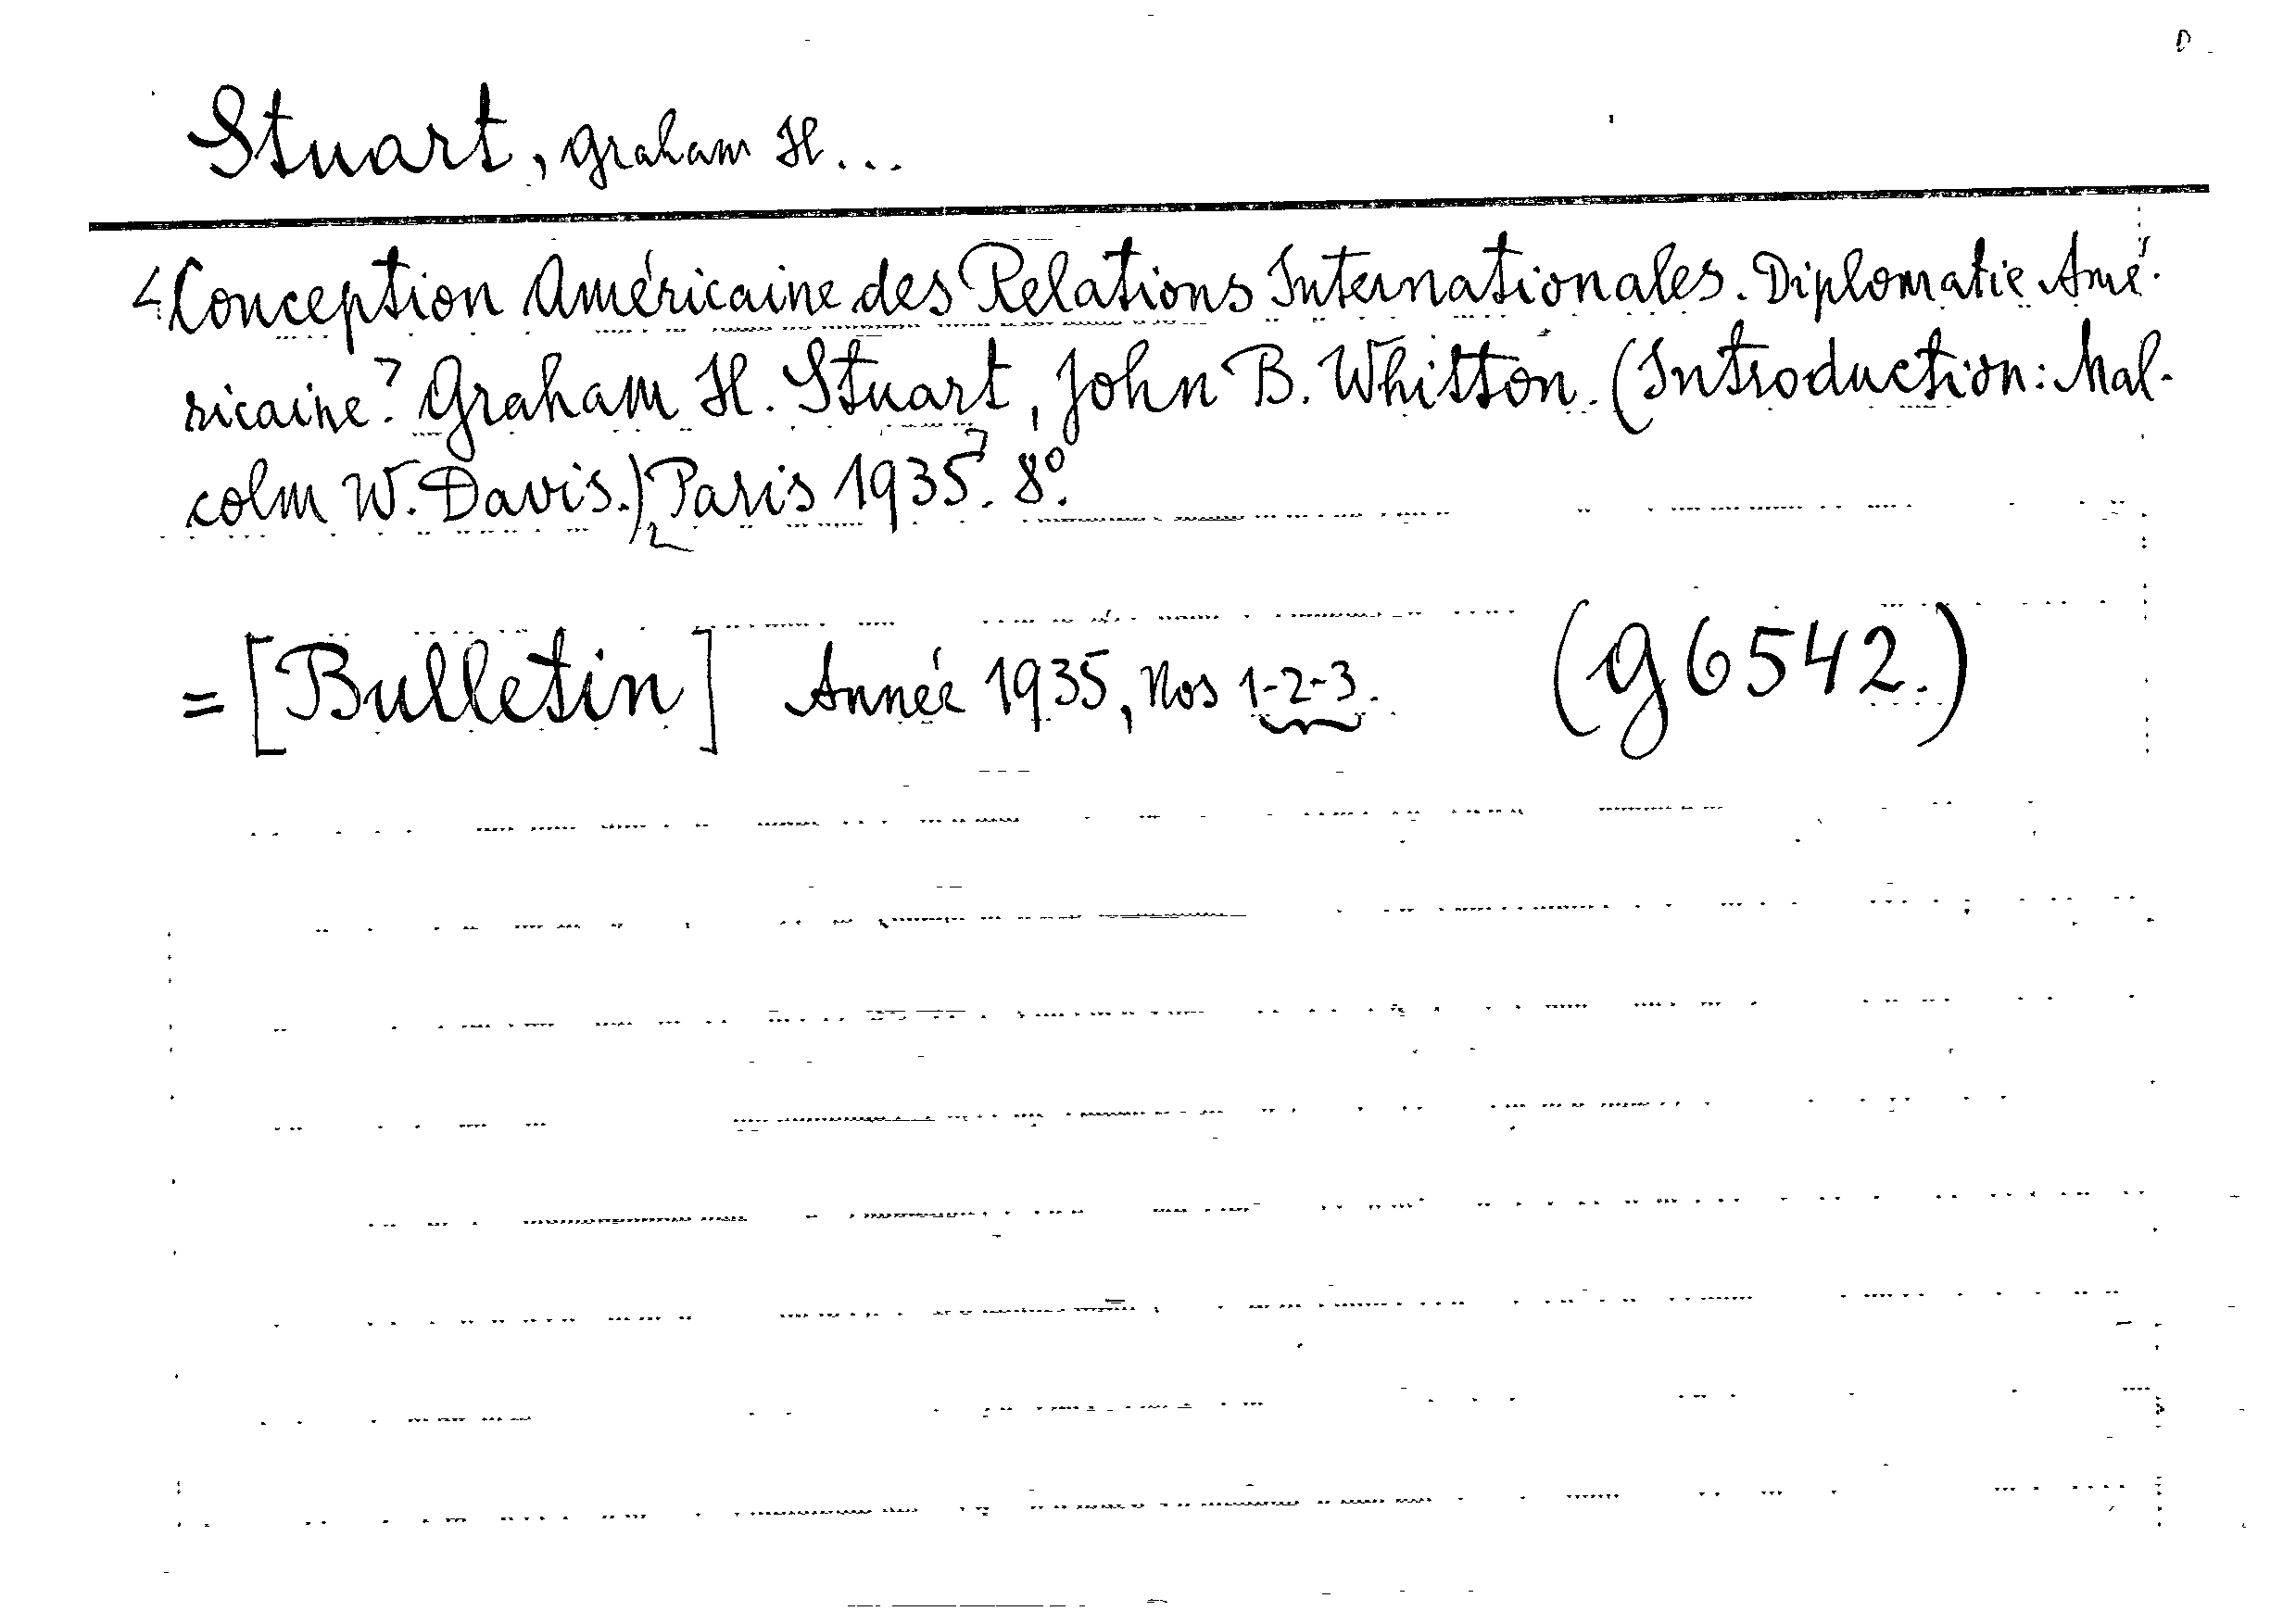 Stuart, Graham H...
Conception Américaine des Relations Internationales. Diplomatie Amé-
ricaine? Graham H. Stuart, John B. Whitton. (Introduction: Mal-
colm W. Davis.) Paris 1935. 8°.
= [Bulletin] Année 1935, Nos 1-2-3. (g6542.)